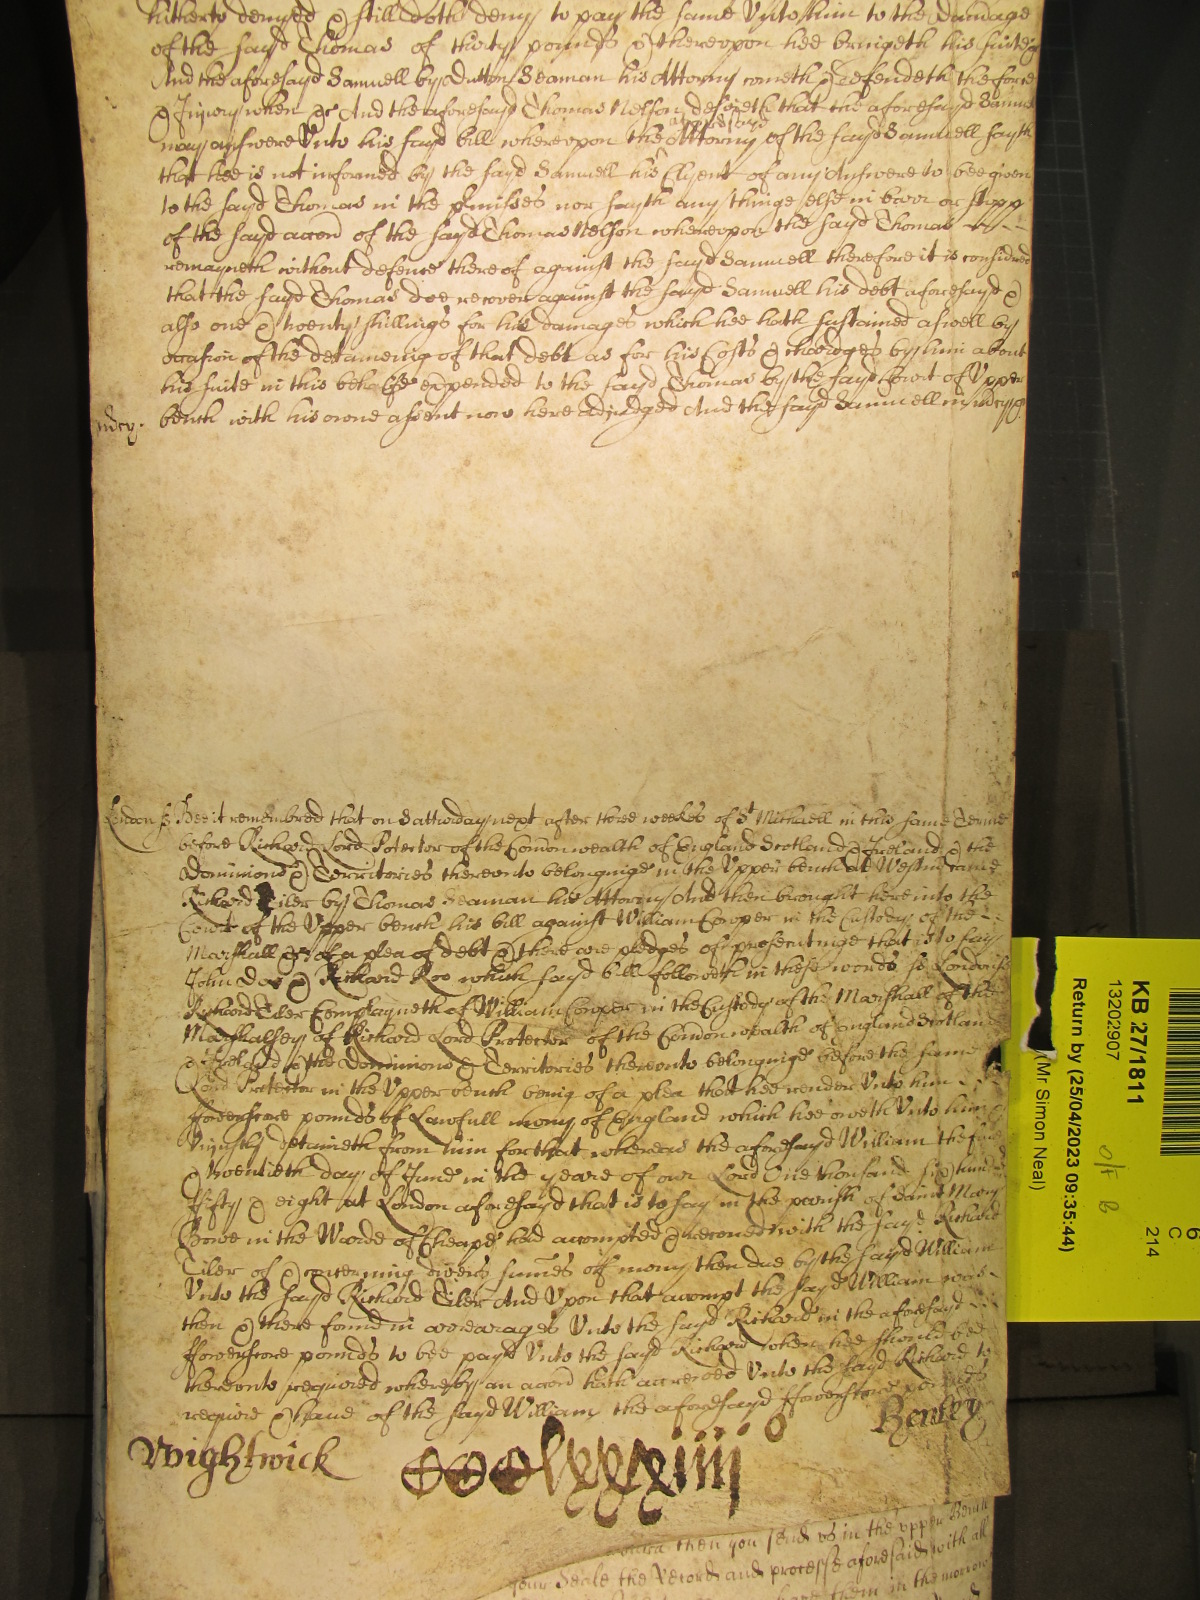 hitherto denyed & still doth deny to pay the same Unto him to the damage
of the sayd Thomas of thirty pounds & thereupon hee bringeth his suite &c
And the aforesayd Samuell by Dutton Seaman his Attorny cometh & defendeth the force
& Iniury when &c And the aforesayd Thomas Nelson desireth that the aforesayd Samuell
may answere Unto his sayd bill whereupon the aforesayd Attorny of the sayd Samuell sayth
that hee is not informed by the sayd Samuell his Clyent of any Answere to bee given
to the sayd Thomas in the premisses nor sayth any thinge else in barr or stopp
of the sayd accon of the sayd Thomas Nelson whereupon the sayd Thomas
remayneth without defence thereof against the sayd Samuell therefore it is considered
that the sayd Thomas doe recover against the sayd Samuell his debt aforesayd &
also one & twenty shillings for his damages which hee hath sustained aswell by
occasion of the detaineing of that debt as for his Costs & chardges by him about
his suite in this behalfe expended to the sayd Thomas by the sayd Court of Upper
bench with his owne assent now here adiudged And the sayd Samuell in mercy &c
mercy.
London ss Bee it remembred that on Satturday next after three weekes of St Michaell in this same Terme
before Richard Lord Protector of the Comonwealth of England Scotland & Ireland & the
Dominions & Territories thereunto belonginge in the Upper bench at Westm came
Richard Tiler by Thomas Seaman his Attorny And then brought here into the
Court of the Upper bench his bill against William Cooper in the Custody of the
Marshall &c of a plea of debt & there are pledges of prosecutinge that is to say
John Doe & Richard Roe which sayd bill followeth in these words ss London ss
Richard Tiler Complayneth of William Cooper in the Custody of the Marshall of the
Marshallsey of Richard Lord Protector of the Comonwealth of England Scotland
& Ireland & the Dominions & Territories thereunto belonginge before the same
Lord Protector in the Upper bench being of a plea that hee render Unto him
ffowerscore pounds of Lawfull mony of England which hee oweth Unto him &
Uniustly detaineth from him for that whereas the aforesayd William the five
& twentieth day of June in the yeare of our Lord One thousand six hundred
ffifty & eight at London aforesayd that is to say in the parish of Saint Mary
Bowe in the Warde of Cheape had accompted & reconed with the sayd Richard
Tiler of & concerning divers summes of mony then due by the sayd William
Unto the sayd Richard Tiler And Upon that accompt the sayd William was
then & there found in arrearages Unto the sayd Richard in the aforesayd
ffowerscore pounds to bee payd Unto the sayd Richard when hee should bee
thereunto required whereby an accon hath accrewed Unto the sayd Richard to
require & have of the sayd William the aforesayd ffowerscore pounds
Wightwick
ccclxxxiiij o
then you send us in the upper Bench
your Seale the Record and processe aforesaid with all
them in the morrow
KB 27/1811
13202907
Return by (25/04/2023 09:35:44)
(Mr Simon Neal)
O/F b
6
C
214